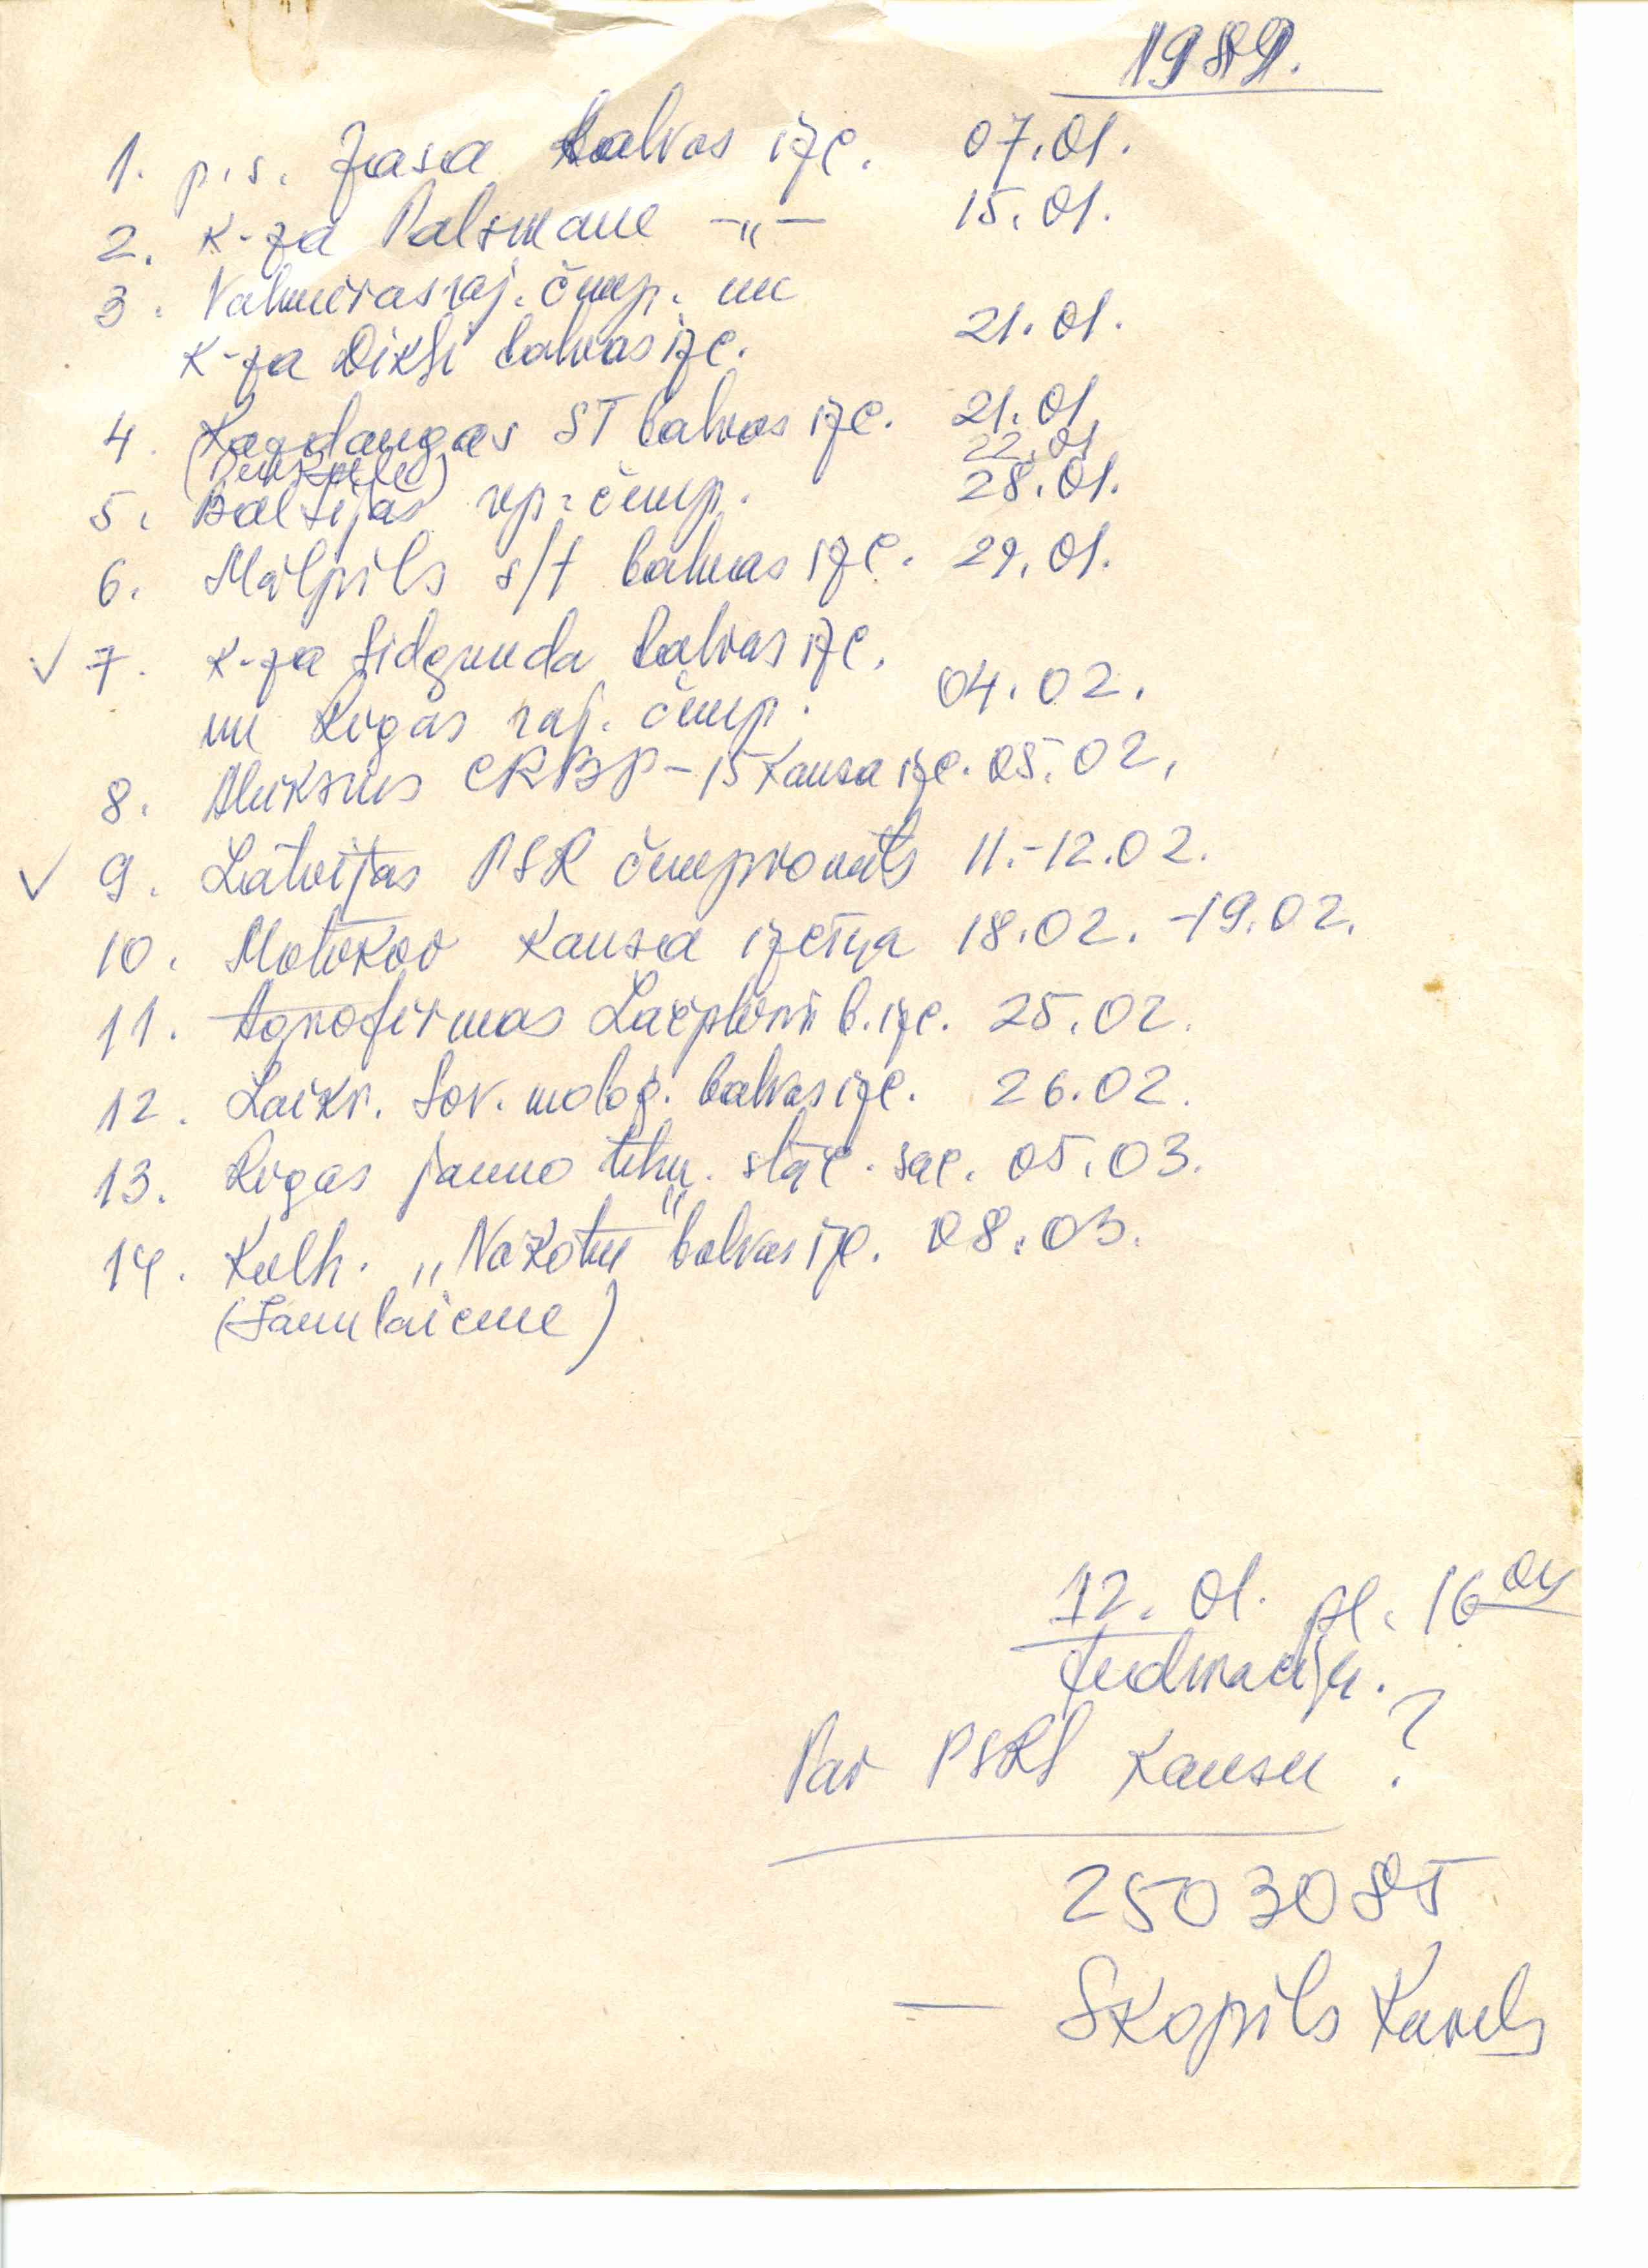 1989.
1. p.s. Zasa balvas izc. 07.01.
2. K-za Palsmane —"— 15.01.
3. Valmieras raj. čemp. un
K-za Dikļi balvas izc. 21.01.
4. Kazdangas ST balvas izc. 21.01.
22.01
5. Baltijas rp. čemp. 28.01.
6. Mālpils s/t balvas izc. 29.01.
7. K-za Sidgunda balvas izc.
un Rīgas raj. čemp. 04.02.
8. Alūksnes CRBP-15 Kausa izc. 05.02.
9. Latvijas PSR čempionāts 11.-12.02.
10. Motokov Kausa izcīņa 18.02.-19.02.
11. Agrofirmas Lāčplēsis b. izc. 25.02.
12. Laikr. Sov. molod. balvas izc. 26.02.
13. Rīgas jauno tehn. stac. sac. 05.03.
14. Kolh. „Nākotne" balvas izc. 08.03.
12.01. pl. 16
Par PSRS Kausu ?
— Skopils Karels